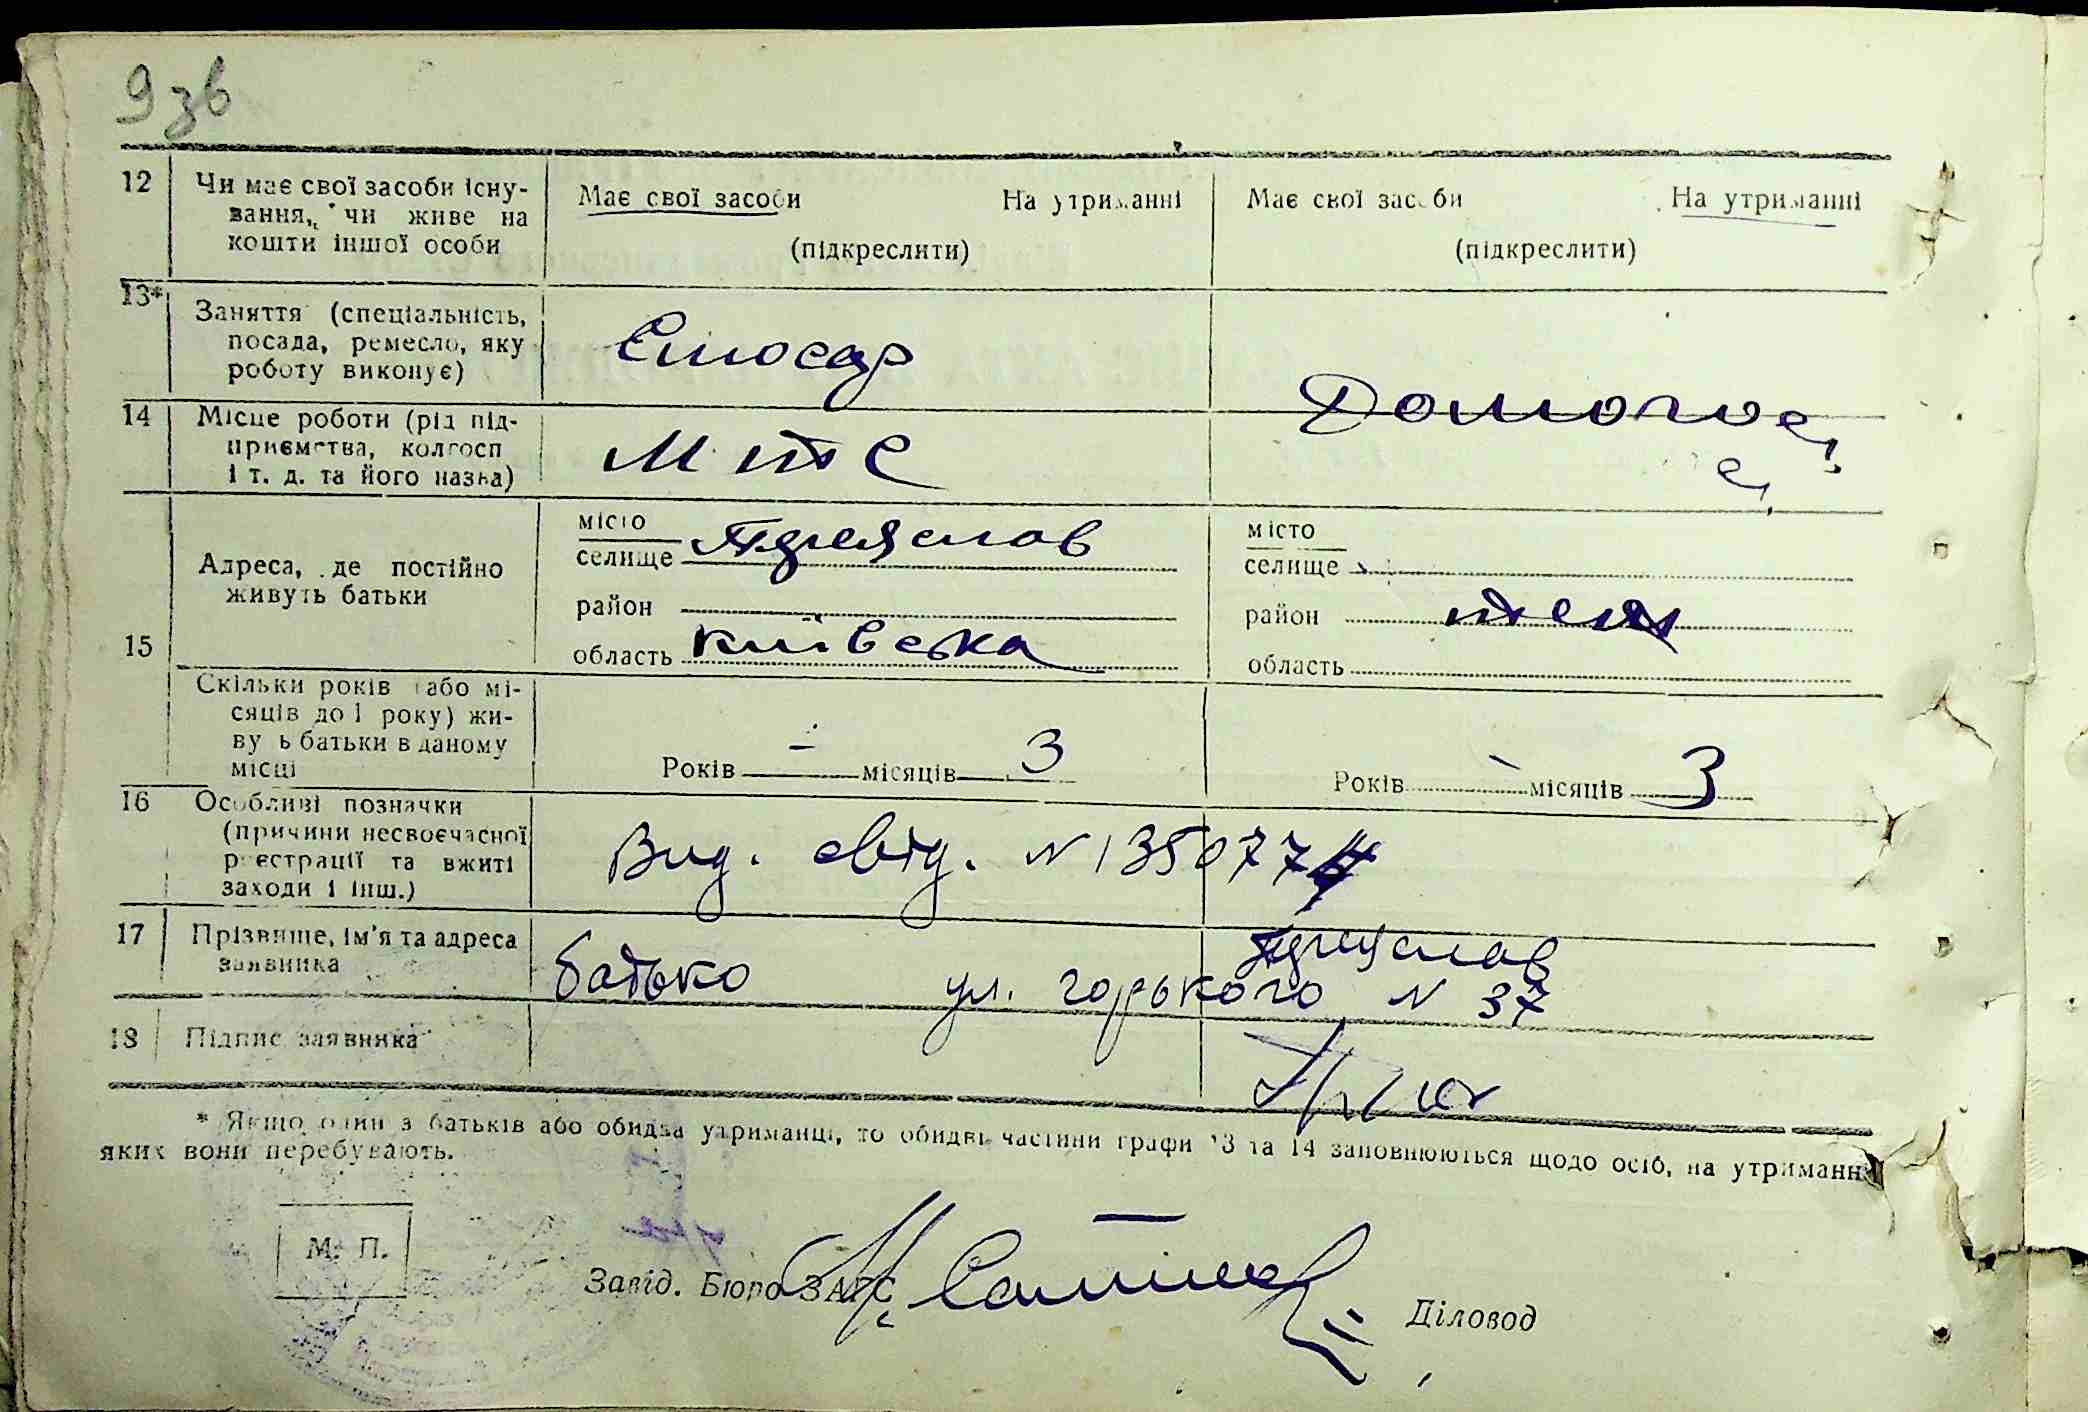 9 зв
12 Чи має свої засоби існу- Має свої засоби На утриманні Має свої засоби На утриманні
вання, чи живе на
кошти іншої особи (підкреслити) (підкреслити)
13* Заняття (спеціальність, Слюсар
посада, ремесло, яку
роботу виконує)
14 Місце роботи (рід під- МТС
приємства, колгосп
і т. д. та його назва)
15 Адреса, де постійно
живуть батьки
місто
селище Переяслав
район
область Київська
місто
селище
район теж
область
Скільки років (або мі-
сяців до 1 року) жи-
вуть батьки в даному
місці
Років - місяців 3 Років - місяців 3
16 Особливі позначки
(причини несвоєчасної
реєстрації та вжиті
заходи і інш.)
Вид. свід. N 135077
17 Прізвище, ім'я та адреса
заявника
Переяслав
батько ул. горького N 37
18 Підпис заявника
* Якщо один з батьків або обидва утриманці, то обидві частини графи 13 та 14 заповнюються щодо осіб, на утриманні
яких вони перебувають.
М. П.
Завід. Бюро ЗАГС
Діловод